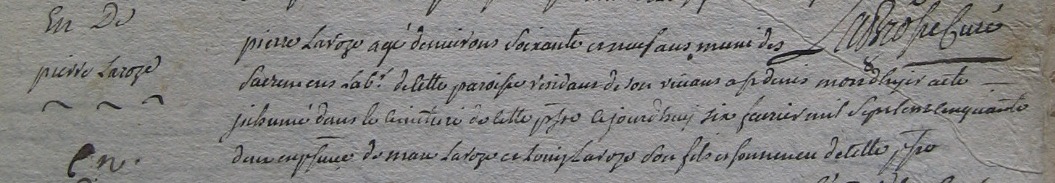 En De
pierre Laroze
En.
Labrosse Curé
pierre Laroze agé denvirons Soixante et neuf ans muni des
Sacremens Lab.r de cette paroisse residant de son vivant a St denis mond hyer a eté
jnhumé dans le Cimitiere de cette psse ce jourdhuy six fevrier mil Sept cent cinquante
deux en psence de marc Laroze et Louis Laroze Son fils et sonneur de cette psse